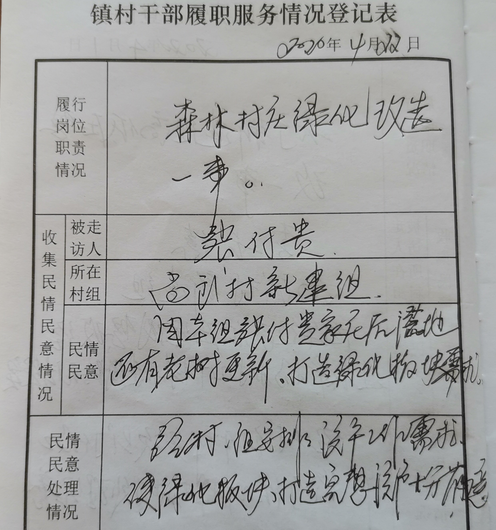 镇村干部履职服务情况登记表
2020年4月22日
履行岗位职责情况
森林村庄绿化改造
一事。
收集民情民意情况
被走访人
张付贵
所在村组
村新建组.
民情民意
因本组张付贵家屋后
还有老树更新.打造绿化板块
民情民意处理情况
经村.组安排
使绿化板块.打造完